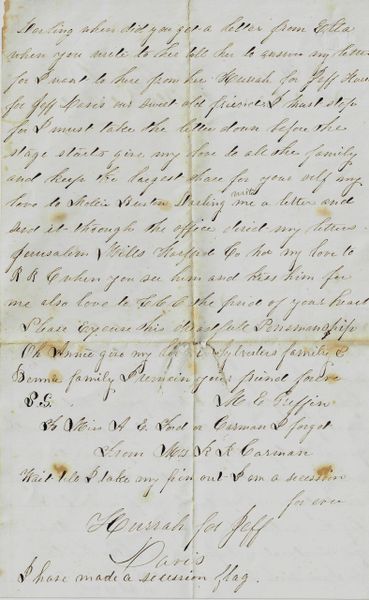 Darling when did you get a letter from Ella
when you write to her tell her to answer my letter
for I want to here from her Hurrah for Jeff Hurrah
for Jeff Davis our sweet old friend I must stop
for I must take the letter down before the
stage starts give my love to all the family
and keep the largest share for your self my
love to Darling write me a letter and
send it through the office direct my letters
Jerusalem Mills Harford Co Md my love to
R R C when you see him and kiss him for
me also love to the of your heart
Please Excuse this dreadfull Penmanship
Oh Annie give my love to Sylvesters family &
family I remain your friend forever
P.S. M E Griffin
To Miss A E Ford or Carman I forgot
From Mrs R R Carman
Wait till I take my pin out I am a secession
for ever
Hurrah for Jeff
Davis
I have made a secession flag.